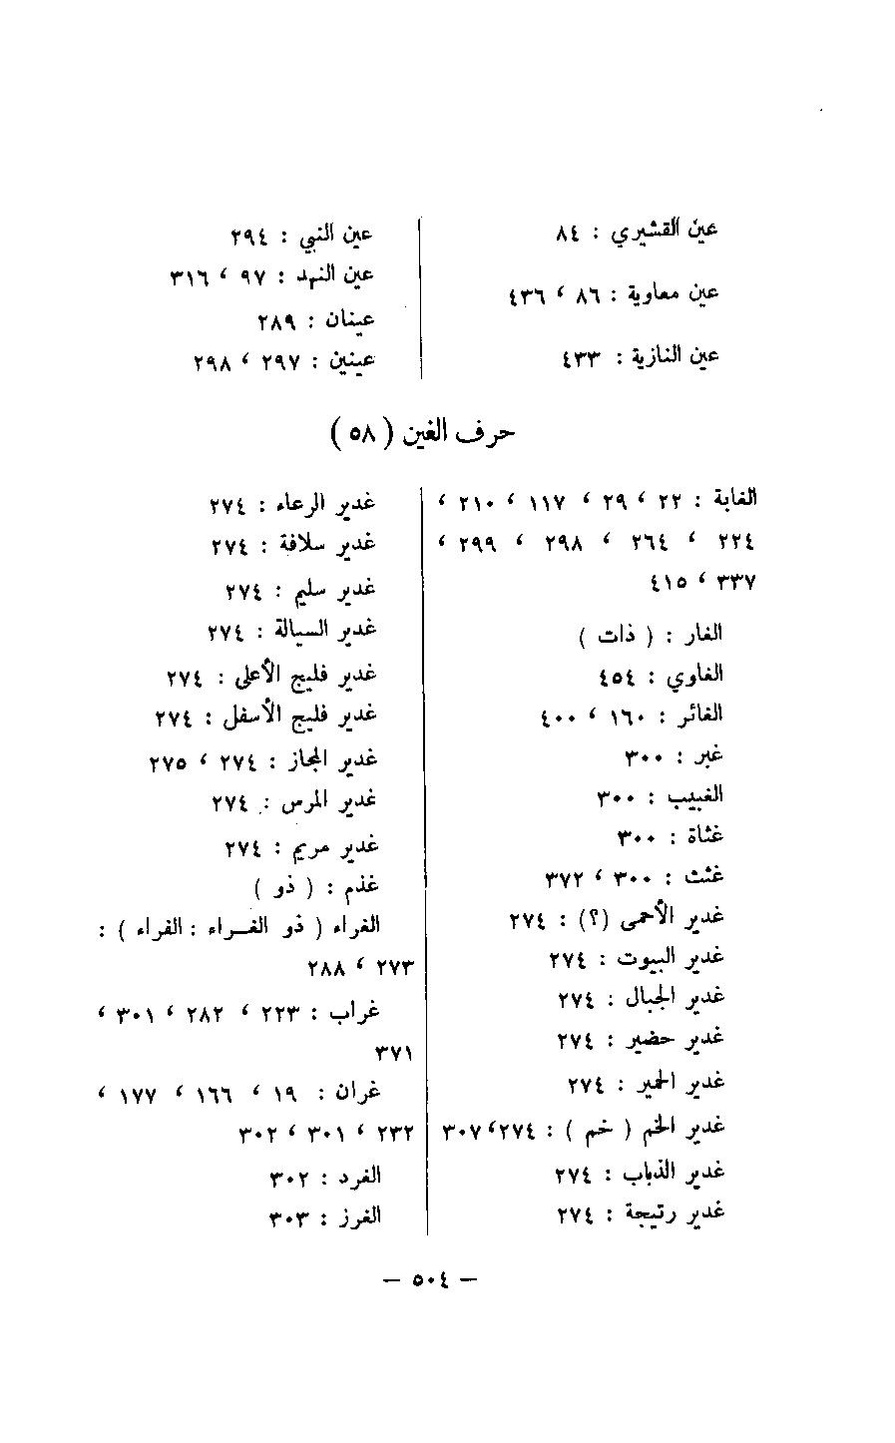 عين القشيري : ٨٤
عين معاوية : ٨٦ ، ٤٣٦
عين النازية : ٤٣٣
عين النبي : ٢٩٤
عين النهد : ٩٧ ، ٣١٦
عينان : ٢٨٩
عينين : ٢٩٧ ، ٢٩٨
حرف الغين ( ٥٨ )
الغابة : ٢٢ ، ٢٩ ، ١١٧ ، ٢١٠ ،
٢٢٤ ، ٢٦٤ ، ٢٩٨ ، ٢٩٩ ،
٣٣٧ ، ٤١٥
الغار : ( ذات )
الغاوي : ٤٥٤
الغائر : ١٦٠ ، ٤٠٠
غبر : ٣٠٠
الغبيب : ٣٠٠
غثاة : ٣٠٠
غثث : ٣٠٠ ، ٣٧٢
غدير الأحمى (؟) : ٢٧٤
غدير البيوت : ٢٧٤
غدير الجبال : ٢٧٤
غدير حضير : ٢٧٤
غدير الحمير : ٢٧٤
غدير الخم ( خم ) : ٢٧٤ ، ٣٠٧
غدير الذباب : ٢٧٤
غدير رتيجة : ٢٧٤
غدير الرعاء : ٢٧٤
غدير سلافة : ٢٧٤
غدير سليم : ٢٧٤
غدير السيالة : ٢٧٤
غدير فليج الأعلى : ٢٧٤
غدير فليج الأسفل : ٢٧٤
غدير المجاز : ٢٧٤ ، ٢٧٥
غدير المرس : ٢٧٤
غدير مريم : ٢٧٤
غذم : ( ذو )
الغراء ( ذو الغراء : الفراء ) :
٢٧٣ ، ٢٨٨
غراب : ٢٢٣ ، ٢٨٢ ، ٣٠١ ،
٣٧١
غران : ١٩ ، ١٦٦ ، ١٧٧ ،
٢٣٢ ، ٣٠١ ، ٣٠٢
الغرد : ٣٠٢
الغرز : ٣٠٣
— ٥٠٤ —